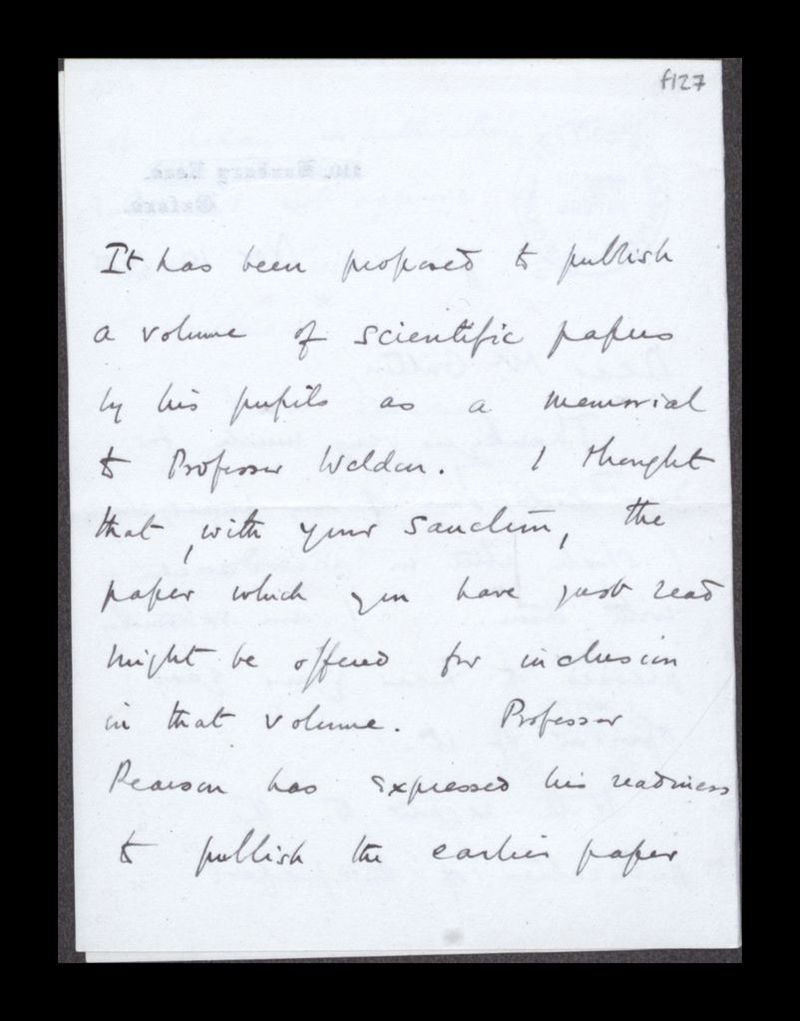 f127
It has been proposed to publish
a volume of scientific papers
by his pupils as a memorial
to Professor Weldon. I thought
that, with your sanction, the
paper which you have just read
might be offered for inclusion
in that volume. Professor
Pearson has expressed his readiness
to publish the earlier paper